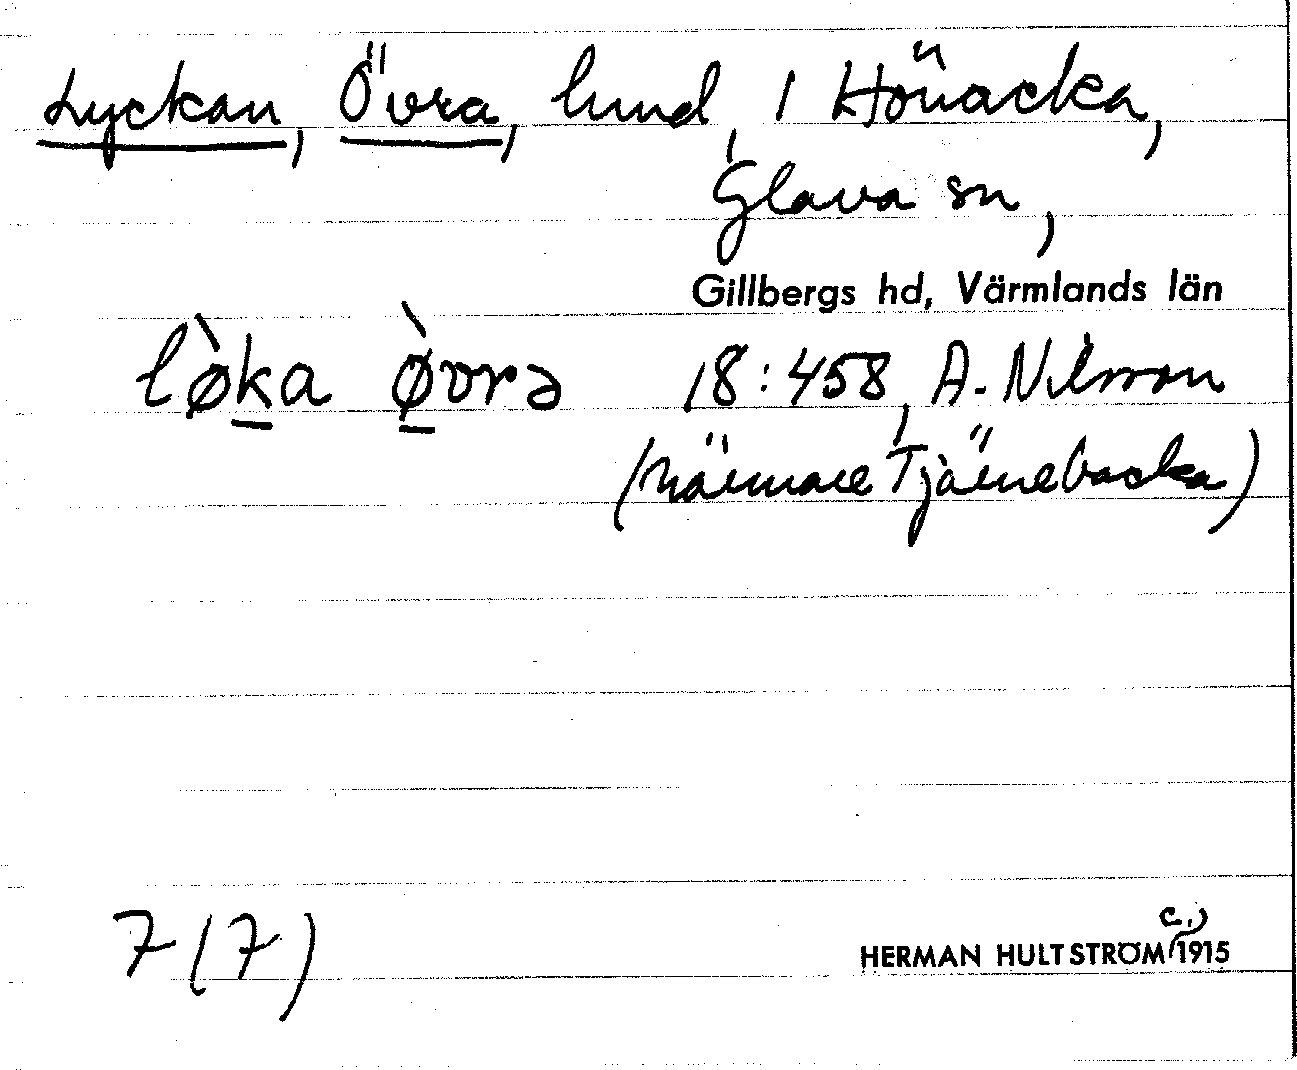 Lyckan, Övra, lund, 1 Hönacka,
Glava sn,
Gillbergs hd, Värmlands län
lø̀ka ø̀vrə 18:458, A. Nilsson
(närmare Tjärnebacka)
7(7)
HERMAN HULTSTRÖM (c.) 1915